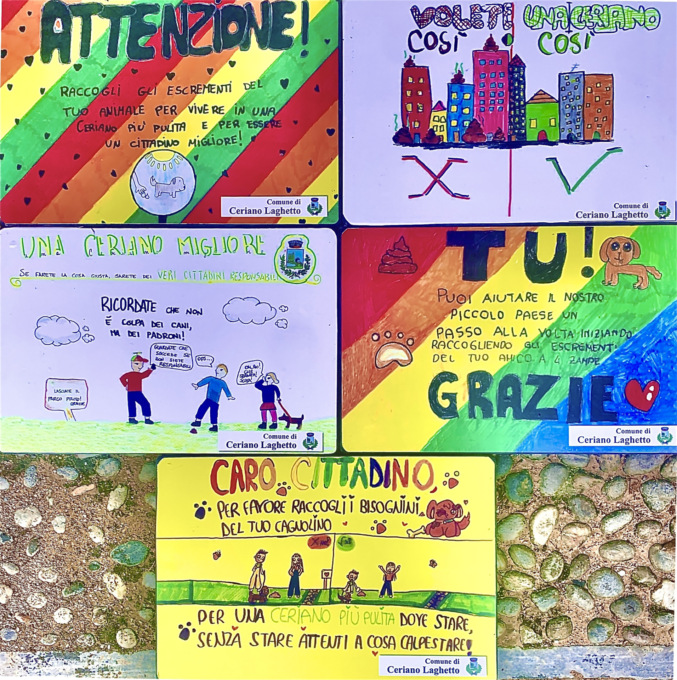 ATTENZIONE!
RACCOGLI GLI ESCREMENTI DEL
TUO ANIMALE PER VIVERE IN UNA
CERIANO PIU' PULITA E PER ESSERE
UN CITTADINO MIGLIORE!
Comune di
Ceriano Laghetto
VOLETE UNA CERIANO
COSÌ COSÌ
X V
Comune di
Ceriano Laghetto
UNA CERIANO MIGLIORE
SE FARETE LA COSA GIUSTA, SARETE DEI VERI CITTADINI RESPONSABILI
RICORDATE CHE NON
È COLPA DEI CANI,
MA DEI PADRONI!
GUARDATE CHE
SUCCEDE SE
NON SIETE
RESPONSABILI
LASCIATE IL
PARCO PULITO!
GRAZIE
Comune di
Ceriano Laghetto
TU!
PUOI AIUTARE IL NOSTRO
PICCOLO PAESE UN
PASSO ALLA VOLTA INIZIANDO
RACCOGLIENDO GLI ESCREMENTI
DEL TUO AMICO A 4 ZAMPE
GRAZIE
Comune di
Ceriano Laghetto
CARO CITTADINO,
PER FAVORE RACCOGLI I BISOGNINI
DEL TUO CAGNOLINO
PER UNA CERIANO PIÙ PULITA DOVE STARE,
SENZA STARE ATTENTI A COSA CALPESTARE!
Comune di
Ceriano Laghetto